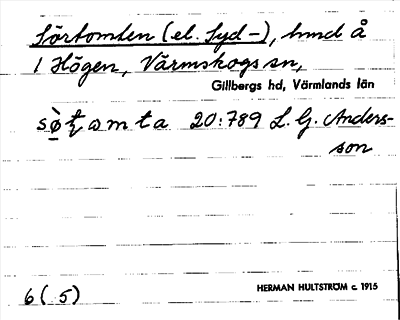 Sörtomten (el. Syd-), hmd å
1 Högen, Värmskogs sn,
Gillbergs hd, Värmlands län
20:789 L. G. Anders-
son
6 (5)
HERMAN HULTSTRÖM c. 1915